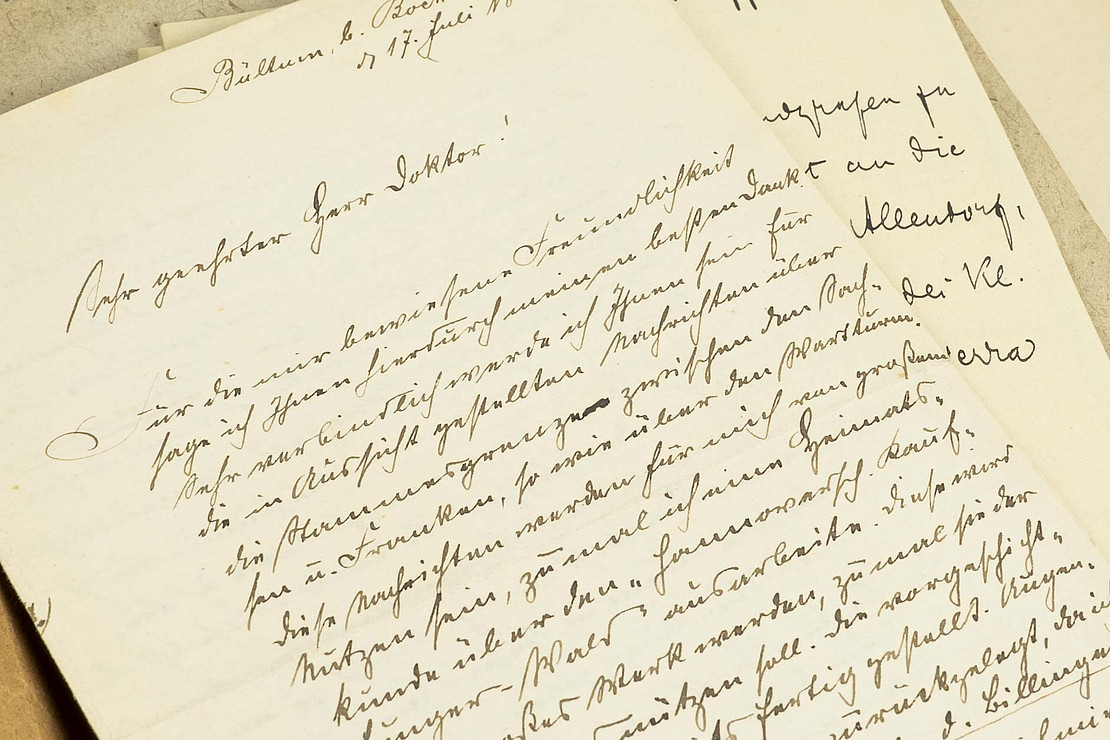 Bültum, b. Bock
d 17. Juli
Sehr geehrter Herr Doktor!
Für die mir bewiesene Freundlichkeit
sage ich Ihnen hierdurch meinen besten Dank.
Sehr verbindlich werde ich Ihnen sein für
die in Aussicht gestellten Nachrichten über
die Stammesgrenze zwischen den Sach-
sen u. Franken, so wie über den Wartturm.
Diese Nachrichten werden für mich von großem
Nutzen sein, zumal ich eine Heimats-
kunde über den "Hannoversch. Kauf-
unger-Wald" ausarbeite. Diese wird
großes Werk werden, zumal sie der
nützen soll. Die vorgeschicht-
fertig gestellt. Augen-
zurückgelegt, da
d. Billinge
zu
t an die
Allendorf,
bei Kl.
erra